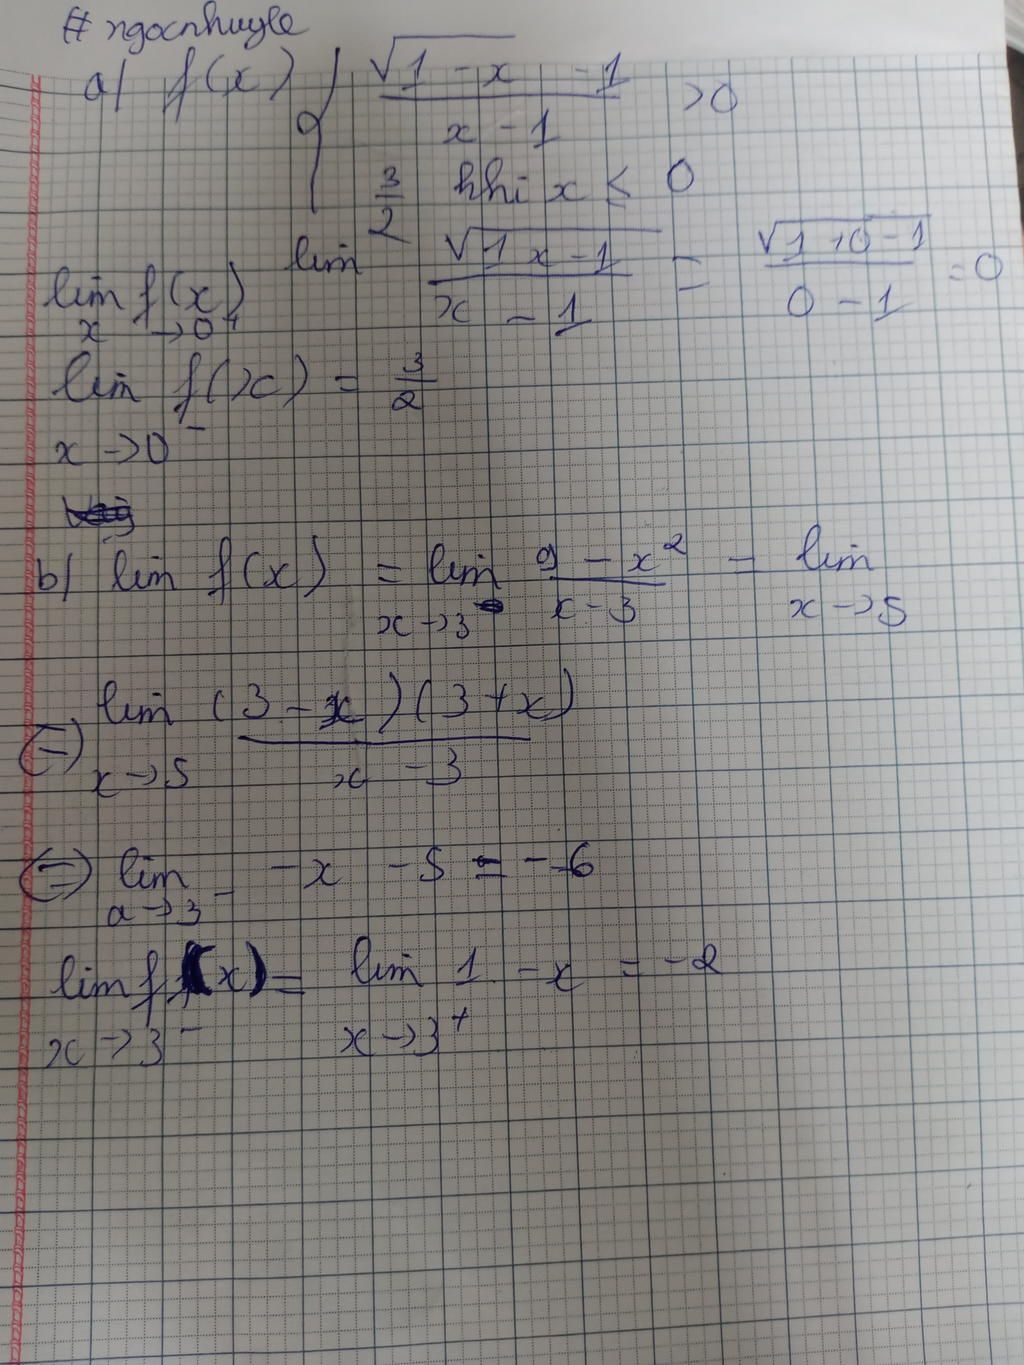 # ngocnhuyle
a) f(x) { √1 - x - 1 / x - 1 > 0
3/2 khi x ≤ 0
lim f(x) x → 0+ lim √1 x - 1 / x - 1 = √1 + 0 - 1 / 0 - 1 = 0
lim f(x) = 3/2
x → 0-
b) lim f(x) = lim x → 3- 9 - x² / x - 3 = lim x → 5
(=) lim x → 5 (3 - x)(3 + x) / x - 3
(=) lim a → 3- -x - 5 = -6
lim f f(x) = lim 1 - x = -2
x → 3- x → 3+